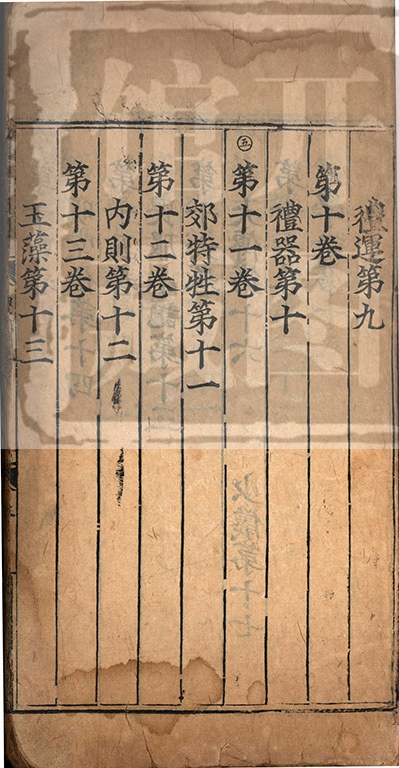 禮運第九
第十卷
禮器第十
五
第十一卷
郊特牲第十一
第十二卷
內則第十二
第十三卷
玉藻第十三